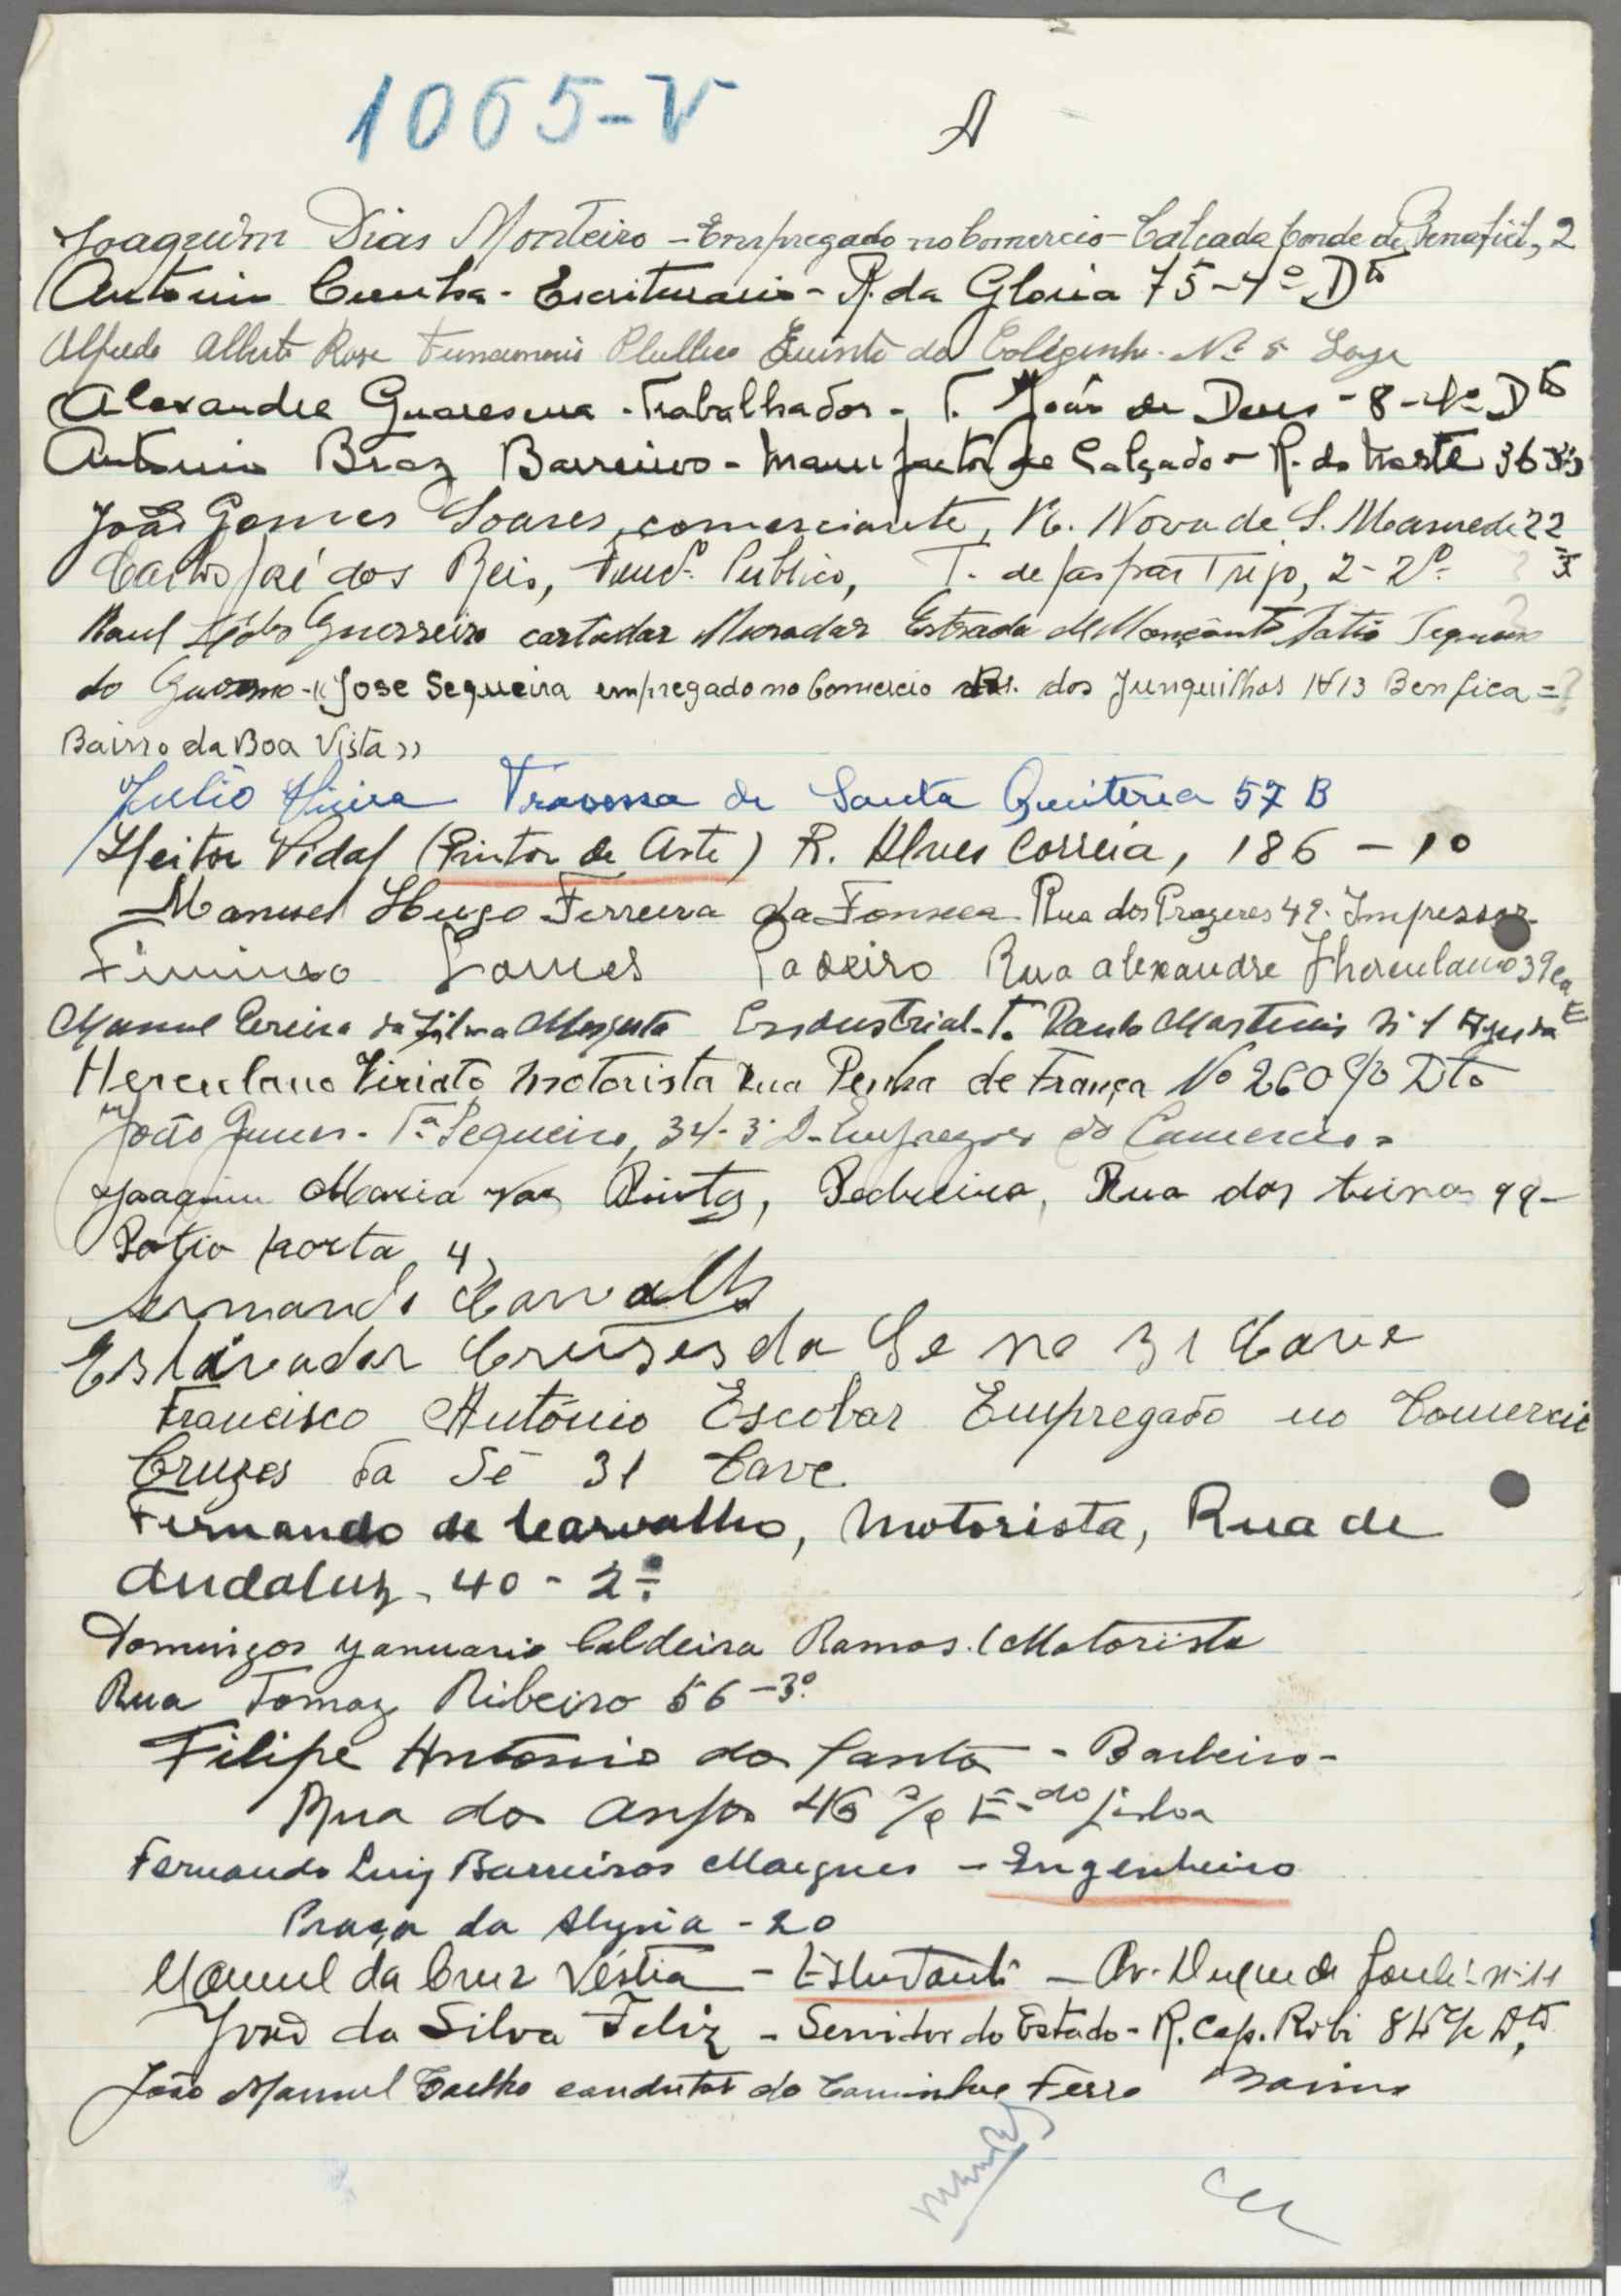 1065-V A
Joaquim Dias Monteiro - Empregado no Comercio - Calçada Conde de Penafiel, 2
Antonio Cunha - Escriturario - R. da Gloria 75-4º Dto
Alfredo Alberto Rosa Quinta do Nº 5 Loja
Alexandre - Trabalhador - T. João de Deus - 8-4º Dto
Antonio Braz Barreiros - Manufactor de Calçado - R. do Norte 36
João Gomes Soares, comerciante, R. Nova de S. Mamede 22
Carlos José dos Reis, Funcº Publico, T. de Gaspar Trigo, 2-2º
Raul Guerreiro cortador Morador Estrada de
do - «Jose Sequeira empregado no Comercio dos Junquilhos 13 Benfica =
Bairro da Boa Vista»
Julio Vieira Travessa de Santa Quiteria 57 B
Heitor Vidal (Pintor de Arte) R. Alves Correia, 186 - 1º
Manuel Hugo Ferreira da Fonseca Rua dos Prazeres 49. Impressor
Firmino Gomes Padeiro Rua alexandre Herculano 39
Manuel Pereira da Silva Mesquita Endustrial - T. Paulo Martins Nº 1 Ajuda
Herculano Viriato motorista Rua Penha de França Nº 260 Dto
João Gomes - Tª Sequeiro, 34-3º D -
Joaquim Maria Vaz Pinto, Pedreiro, Rua das 99-
Patio porta 4
Armando Carvalho
Cruzes da Se no 31 Cave
Francisco António Escobar Empregado no Comercio
Cruzes da Sé 31 Cave
Fernando de Carvalho, Motorista, Rua de
Andaluz, 40-2º
Domingos Yanuario Caldeira Ramos. (Motorista
Rua Tomaz Ribeiro 56-3º
Filipe Antonio dos Santos - Barbeiro -
Rua dos Anjos 46 Lisboa
Fernando Luiz Barreiros Marques - Engenheiro
Praça da Alegria - 20
Manuel da Cruz Véstia - Estudante - Av. Duque de Loulé nº 11
José da Silva Feliz - Servidor do Estado - R. Cap. Robi
João Manuel Coelho condutor do Caminho Ferro